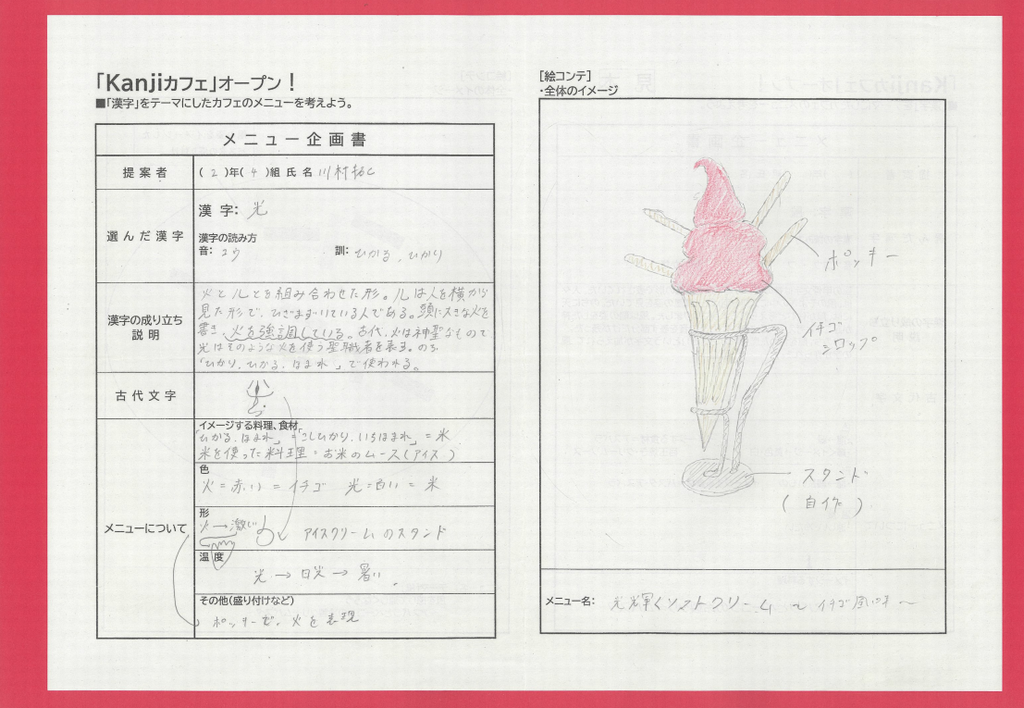 「Kanjiカフェ」オープン！
■「漢字」をテーマにしたカフェのメニューを考えよう。
メニュー企画書
提案者
(2)年(4)組 氏名 川村
選んだ漢字
漢字: 光
漢字の読み方
音: コウ
訓: ひかる、ひかり
漢字の成り立ち
説明
火と儿とを組み合わせた形。儿は人を横から
見た形で、ひざまずいている人である。頭に大きな火を
書き、火を強調している。古代、火は神聖なもので
光はそのような火を使う聖職者を表す。のち
「ひかり、ひかる、ほまれ」で使われる。
古代文字
メニューについて
イメージする料理、食材
「ひかる、ほまれ」=「こしひかり、いちほまれ」=米
米を使った料理・お米のムース(アイス)
色
火=赤い=イチゴ 光=白い=米
形
火→激しい
アイスクリームのスタンド
温度
光→日光→暑い
その他(盛り付けなど)
ポッキーで、火を表現
[絵コンテ]
・全体のイメージ
ポッキー
イチゴ
シロップ
スタンド
(自作)
メニュー名: 光輝くソフトクリーム 〜イチゴ風味〜